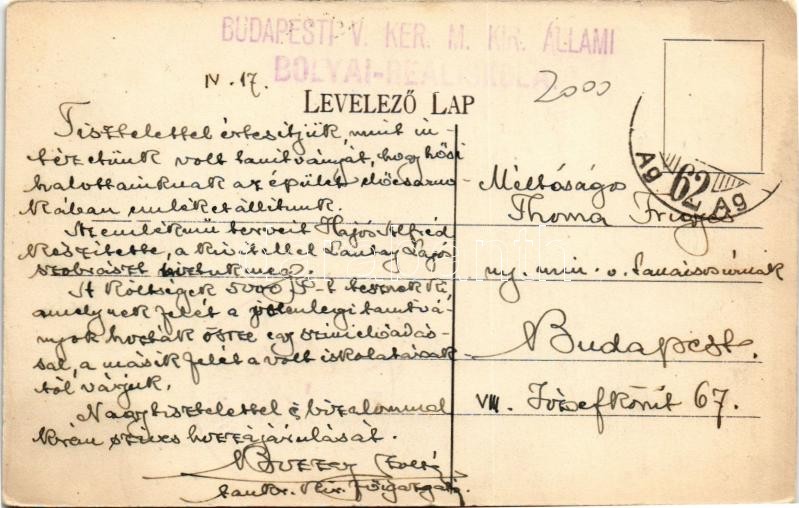 BUDAPESTI V. KER. M. KIR. ÁLLAMI
BOLYAI-REÁLISKOLA
IV. 17.
2000
LEVELEZŐ LAP
Tisztelettel értesítjük, mint in-
tézetünk volt tanítványát, hogy hősi
halottainknak az épület előcsarno-
kában emléket állítunk.
A emlékmű terveit Hajós Alfréd
készítette, a kivitellel Lajos
szobrászt biztuk meg.
A költségek 5000 P-t tesznek ki
amelynek felét a jelenlegi tanítvá-
nyok hozták össze egy színielőadás-
sal, a másik felét a volt iskolatársak-
tól várjuk.
Nagy tisztelettel és bizalommal
kérem szíves hozzájárulását.
Zoltán
tanker. kir. főigazgató
Ag 62 Ag
Méltóságos
Thoma Frigyes
ny. min. o. tanácsosúrnak
Budapest.
VIII. József körút 67.